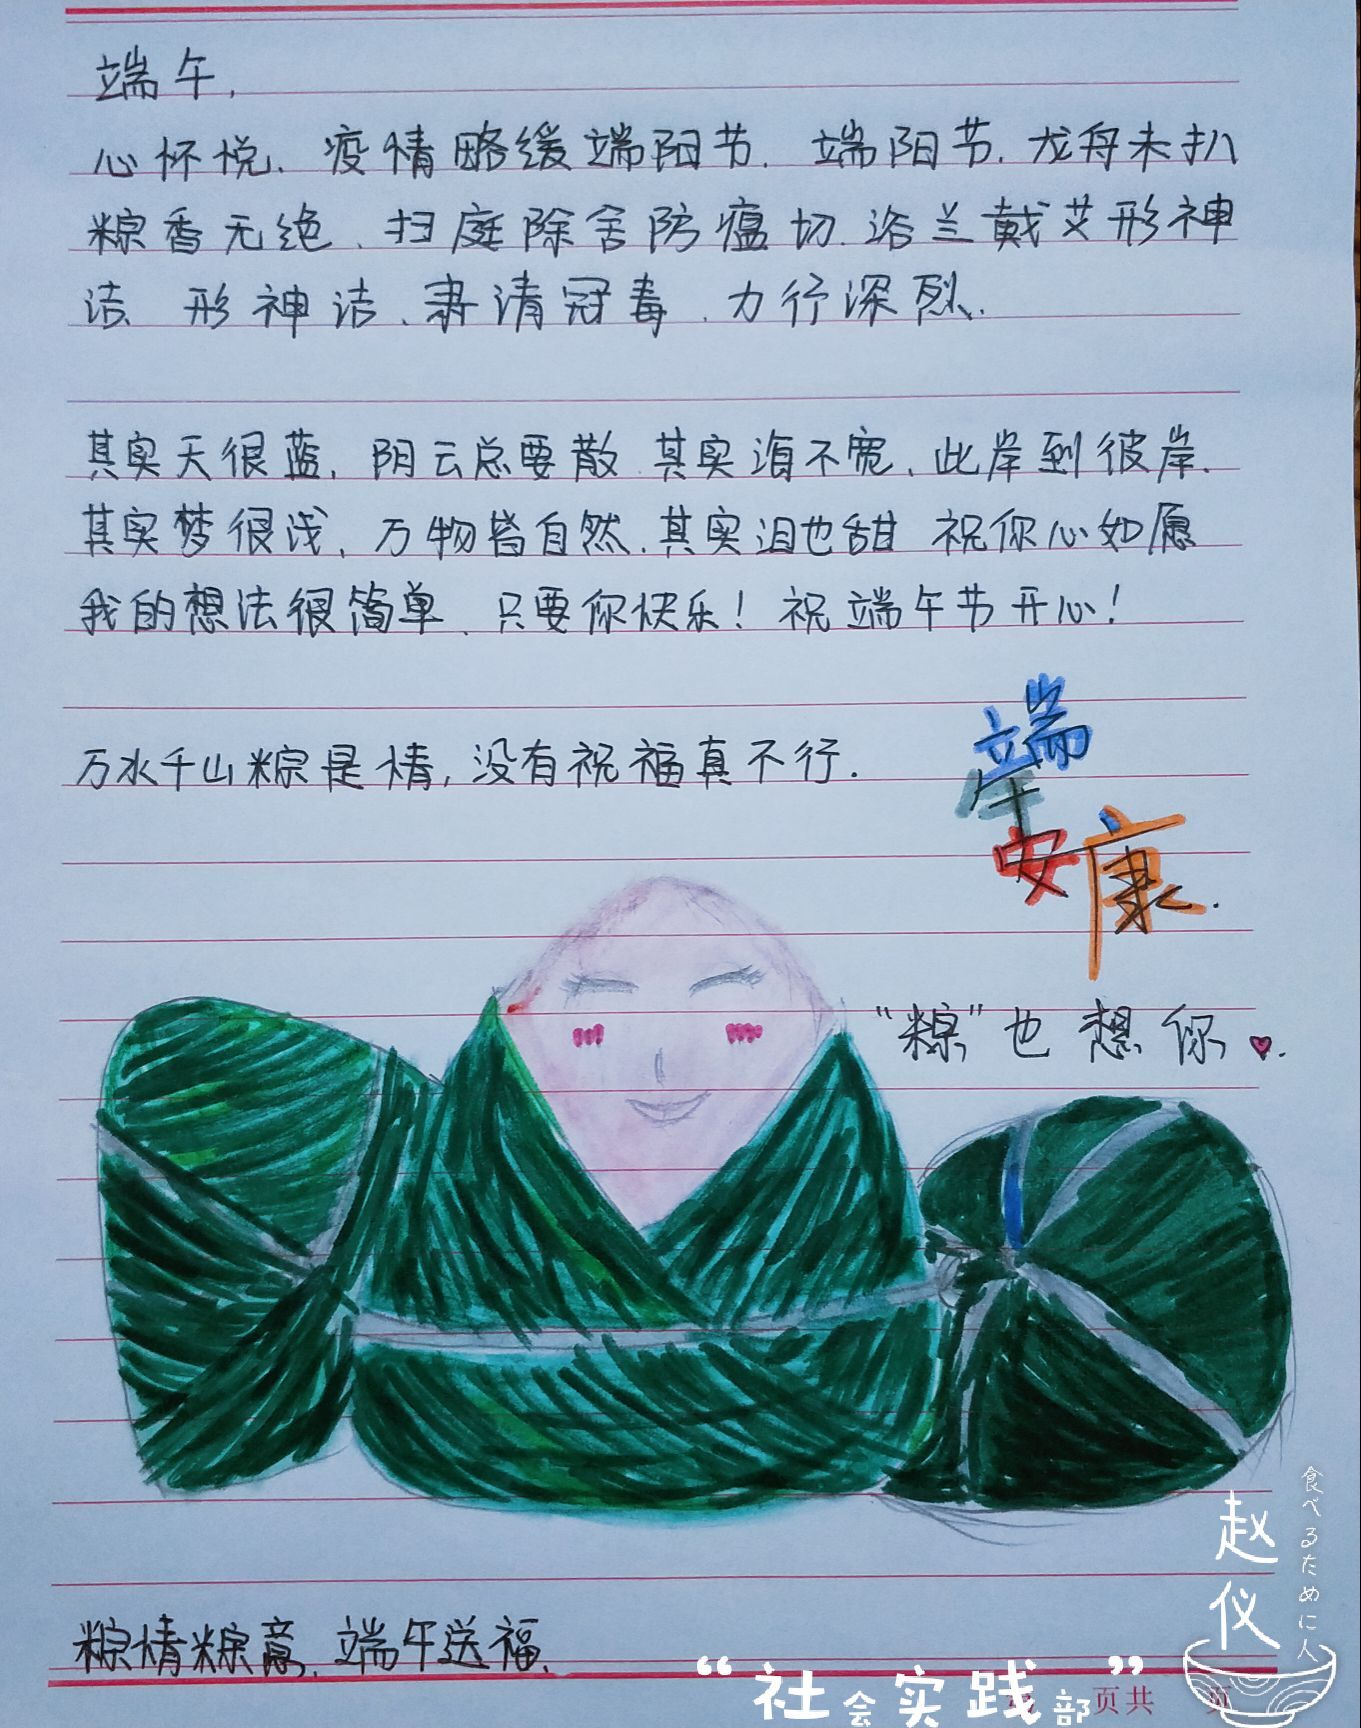 端午，
心怀悦．疫情略缓端阳节．端阳节．龙舟未扒
粽香无绝．扫庭除舍防瘟切．浴兰戴艾形神
洁．形神洁．肃清冠毒．力行深烈．
其实天很蓝，阴云总要散．其实海不宽，此岸到彼岸．
其实梦很浅，万物皆自然．其实泪也甜 祝你心如愿
我的想法很简单．只要你快乐！祝端午节开心！
万水千山粽是情，没有祝福真不行．
端
午
安康．
"粽"也想你♥．
粽情粽意．端午送福．
食べるために人
赵仪
“社会实践部”
页共 页